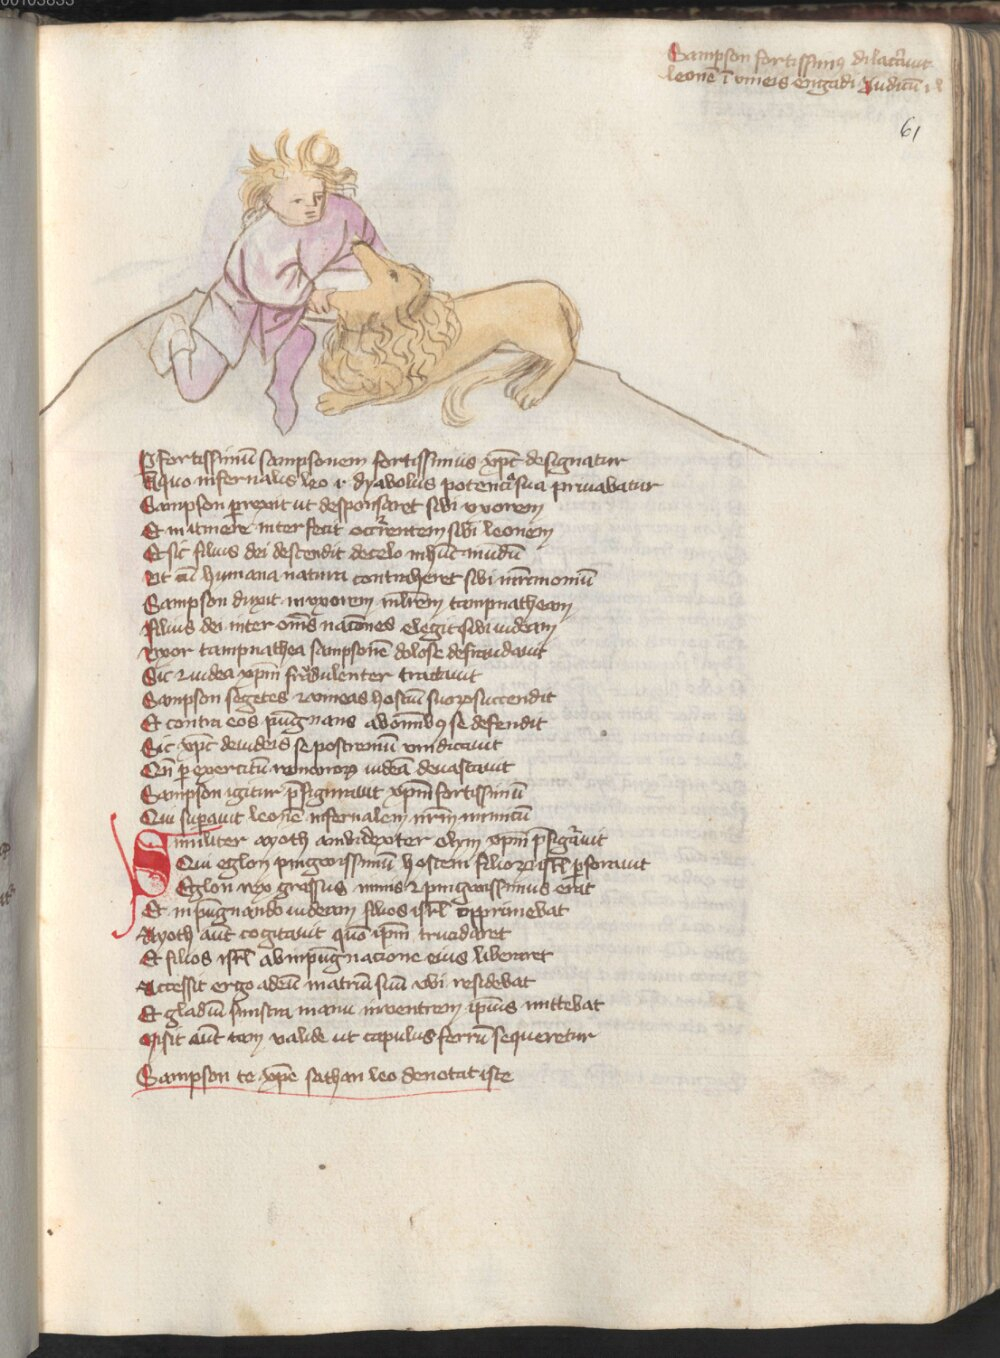 00103833
Sampson fortissimꝯ dilacᷓauit
leonē ī vineis engadi Judicū 1
61
P fortissimū sampsonem fortissimus xp̄c designatur
A quo infernalis leo .i. dyabolus potencͥa sua priuabatur
Sampson perrexit ut desponsaret sibi vxorem
Et in itinere interfecit occᷓrentem sibi leonem
Et sic filius dei descendit de celo in hūc mūdū
Vt cū humana natura contraheret sibi mr̄imoniū
Sampson duxit in vxorem mlr̄em tampnatheam
Filius dei inter om̄s nac̄ones elegit sibi iudeam
Vxor tampnathea sampsonē dolose defraudauit
Sic ⁊ iudea xp̄m fraudulenter tractauit
Sampson segetes ⁊ vineas hostiū suoꝝ succendit
Et contra eos pūgnans ab om̄ibꝯ se defendit
Sic xp̄c de iudeis se postremū vindicauit
Qn̄ ꝑ exercitū romanoꝝ iudeā deuastauit
Sampson igitur p̄figurauit xp̄m fortissimū
Qui suꝑauit leonē infernalem nr̄m inimicū
Similiter ayoth ambidexter olym xp̄m p̄figᷓauit
Qui eglon pingwissimū hostem filioꝝ isrl̄ ꝑforauit
Eglon rex grossus nimis ⁊ pingwissimus erat
Et inpūgnando iudeam filios isrl̄ opprimebat
Ayoth aut̄ cogitauit quō ip̄m trucidaret
Et filios isrl̄ ab inpūgnacione eius liberaret
Accessit ergo ad eū in atriū suū vbi residebat
Et gladiū sinistra manu in ventrem ip̄ius mittebat
Misit aūt tam valide ut capulus ferrū sequeretur
Sampson te xp̄e sathan leo denotat iste